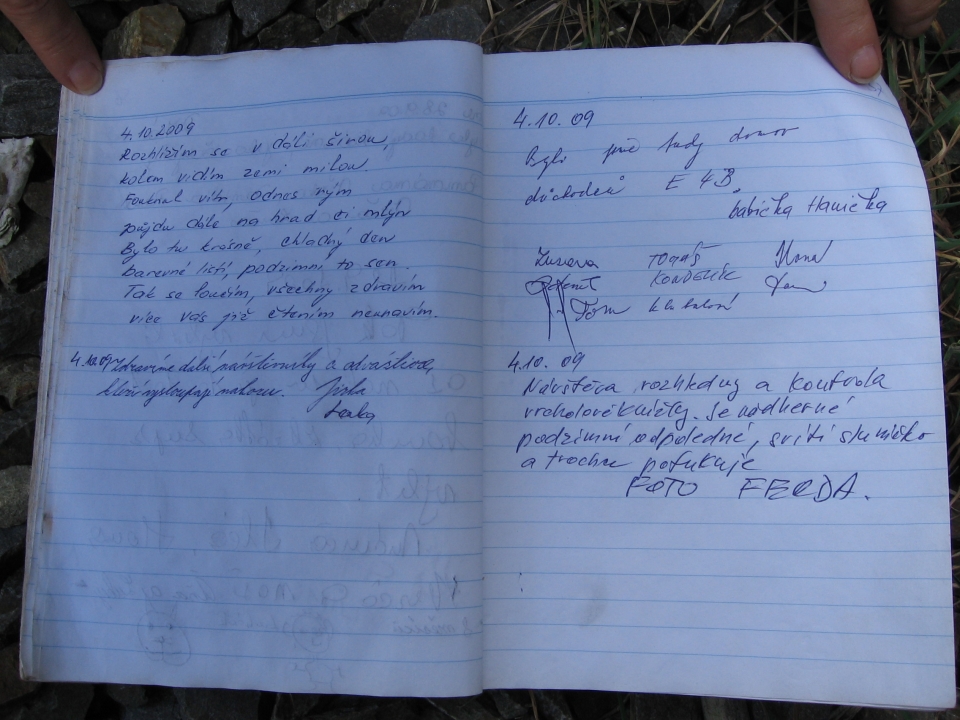 4.10.2009
Rozhlížím se v dáli širou,
kolem vidím zemi milou.
Foukal vítr, odnes rým
půjdu dále na hrad či mlýn
Bylo tu krásně, chladný den
barevné listí, podzimní to sen
Tak se loučím, všechny zdravím
více vás již čtením neunavím.
4.10.09 Zdravíme další návštěvníky a odvážlivce,
kteří vyšlapají nahoru. Jirka
Lenka
4.10.09
Byli jsme tady domov
důchodců E 4B.
babička Hanička
Zuzana TOMÁŠ
KONDELÍK
Tom
4.10.09
Návštěva rozhledny a kontrola
vrcholové knížky. Je nádherné
podzimní odpoledne, svítí sluníčko
a trochu pofukuje
FOTO FERDA.